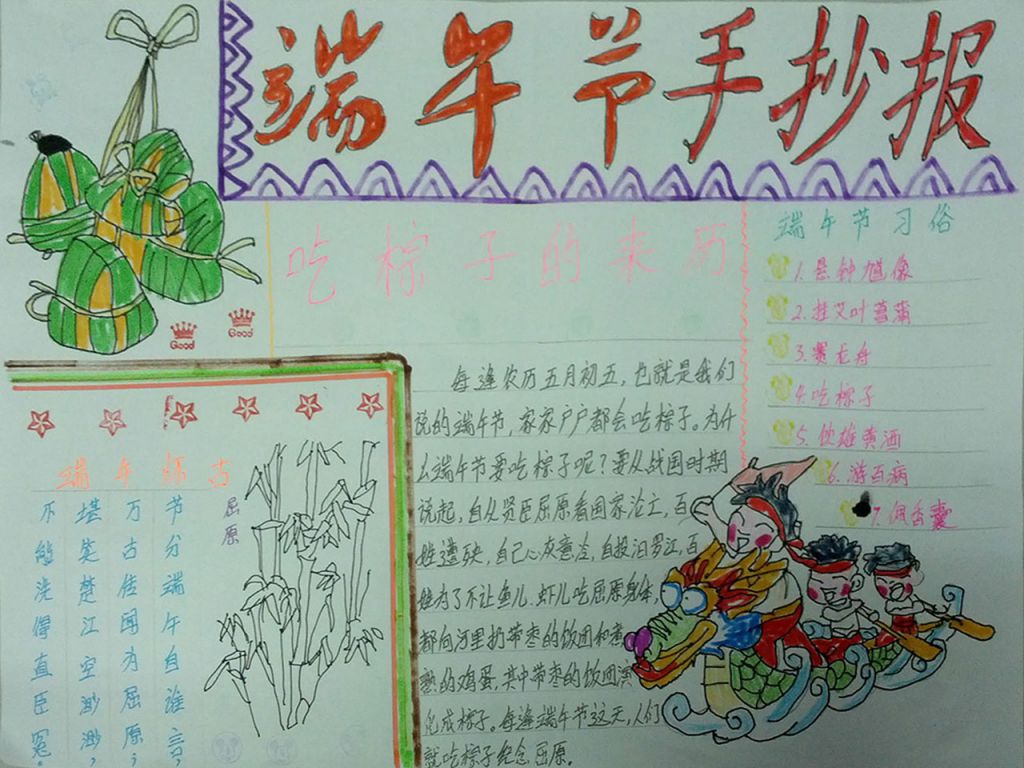 端午节手抄报
吃棕子的来历
每逢农历五月初五，也就是我们
说的端午节，家家户户都会吃棕子。为什
么端午节要吃棕子呢？要从战国时期
说起，自从贤臣屈原看国家沦亡，百
姓遭殃，自己心灰意冷，自投汨罗江，百
姓为了不让鱼儿、虾儿吃屈原身体，
都向河里扔带枣的饭团和煮
熟的鸡蛋，其中带枣的饭团演
化成棕子。每逢端午节这天，人们
就吃棕子纪念屈原。
端午节习俗
1.悬钟馗像
2.挂艾叶菖蒲
3.赛龙舟
4.吃棕子
5.饮雄黄酒
6.游百病
7.佩香囊
Good
Good
端午怀古
屈原
节分端午自谁言，
万古传闻为屈原；
堪笑楚江空渺渺，
不能洗得直臣冤。